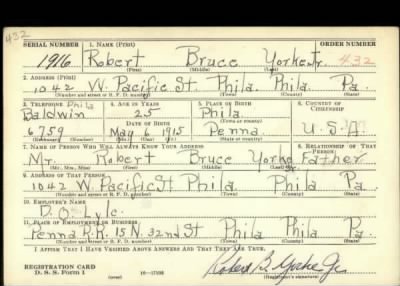 432
SERIAL NUMBER 1. NAME (Print) ORDER NUMBER
1916 Robert Bruce Yorke Jr. 432
(First) (Middle) (Last)
2. ADDRESS (Print)
1042 W. Pacific St. Phila. Phila. Pa.
(Number and street or R. F. D. number) (Town) (County) (State)
3. TELEPHONE Phila 4. AGE IN YEARS 5. PLACE OF BIRTH 6. COUNTRY OF CITIZENSHIP
Baldwin 25 Phila
DATE OF BIRTH (Town or county)
6759 May 6 1915 Penna. U.S.A.
(Mo.) (Day) (Yr.) (State or country)
7. NAME OF PERSON WHO WILL ALWAYS KNOW YOUR ADDRESS 8. RELATIONSHIP OF THAT PERSON
Mr. Robert Bruce Yorke Father
(Mr., Mrs., Miss) (First) (Middle) (Last)
9. ADDRESS OF THAT PERSON
1042 W. Pacific St Phila Phila Pa.
(Number and street or R. F. D. number) (Town) (County) (State)
10. EMPLOYER'S NAME
D. O. Lyle.
11. PLACE OF EMPLOYMENT OR BUSINESS
Penna R.R. 15 N. 32nd St Phila Phila Pa.
(Number and street or R. F. D. number) (Town) (County) (State)
I AFFIRM THAT I HAVE VERIFIED ABOVE ANSWERS AND THAT THEY ARE TRUE.
REGISTRATION CARD
D. S. S. Form 1 Robert B. Yorke Jr.
(Registrant's signature)